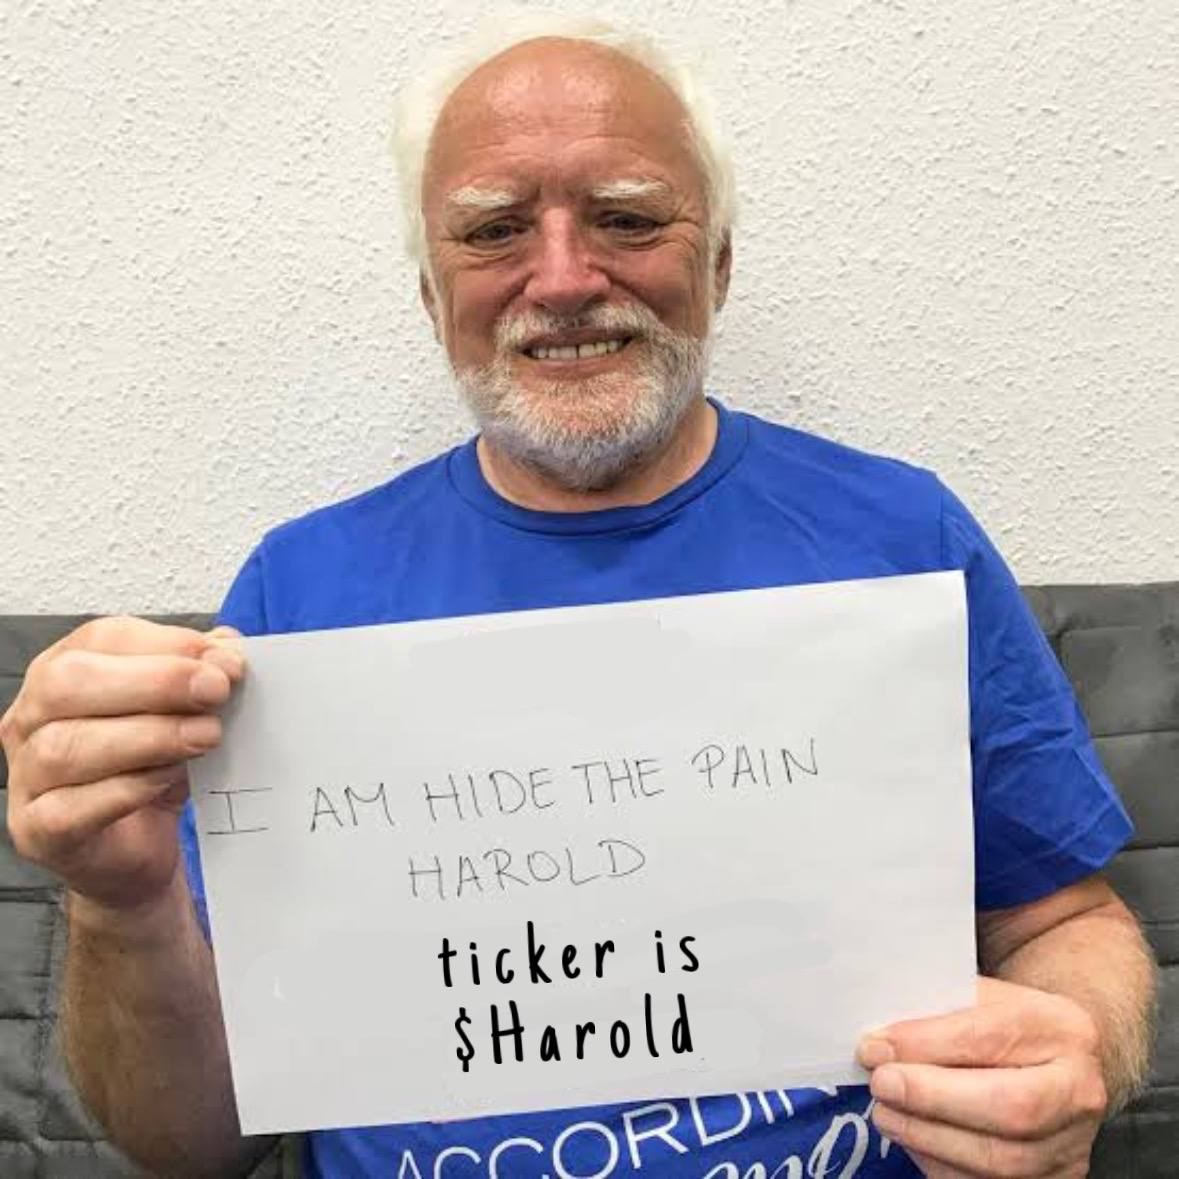 I AM HIDE THE PAIN
HAROLD
ticker is
$Harold